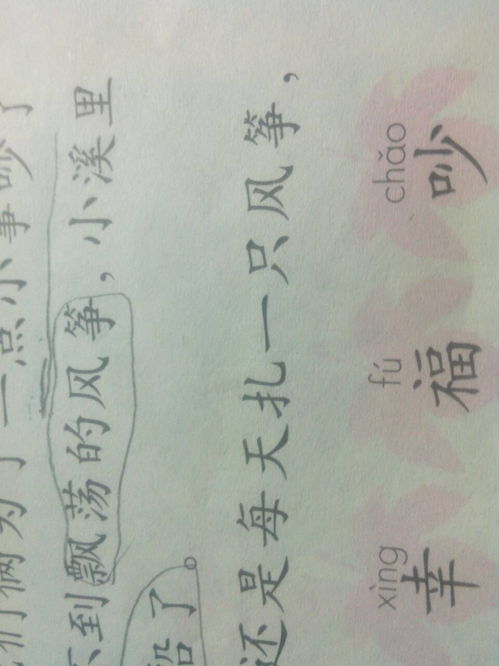 们俩为了一点小事吵了
到飘荡的风筝，小溪里
船了。
还是每天扎一只风筝，
xìng fú chǎo
幸 福 吵